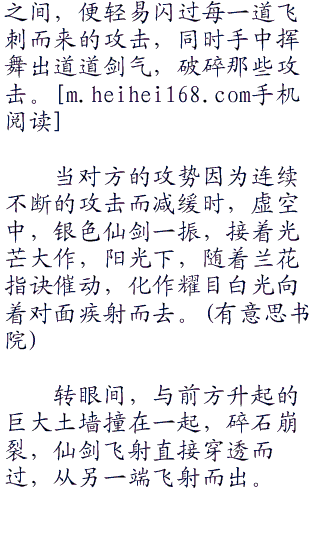 之间，便轻易闪过每一道飞
刺而来的攻击，同时手中挥
舞出道道剑气，破碎那些攻
击。[m.heihei168.com手机
阅读]
当对方的攻势因为连续
不断的攻击而减缓时，虚空
中，银色仙剑一振，接着光
芒大作，阳光下，随着兰花
指诀催动，化作耀目白光向
着对面疾射而去。(有意思书
院)
转眼间，与前方升起的
巨大土墙撞在一起，碎石崩
裂，仙剑飞射直接穿透而
过，从另一端飞射而出。